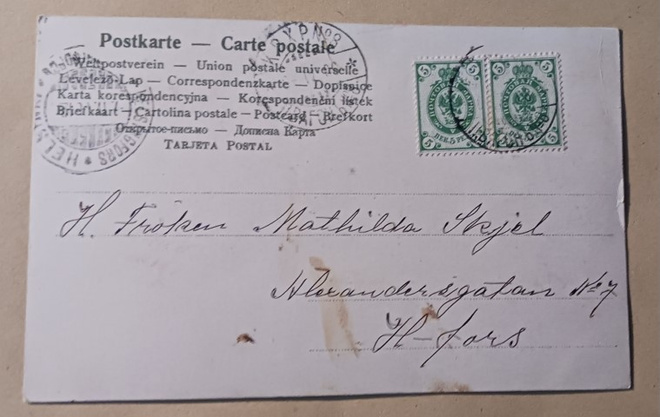 Postkarte — Carte postale
Weltpostverein — Union postale universelle
Levelező-Lap — Correspondenzkarte — Dopisnice
Karta korespondencyjna — Korespondenční lístek
Briefkaart — Cartolina postale — Postcard — Brefkort
Открытое письмо — Дописна Карта
TARJETA POSTAL
5 5
5 5
5 5
5 5
HELSINGFORS
H. Fröken Mathilda Skjel
Alexandersgatan No 7
H-fors